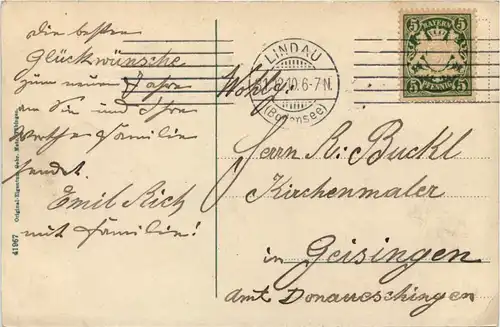 die besten
Glückwünsche
zum neuen Jahre
an Sie und Ihre
werthe Familie
sendet
Emil Rich
mit Familie!
LINDAU
10.6-7N.
(Bodensee)
BAYERN
5 5
5 5
PFENNIG
Herrn K: Buckl
Kirchenmaler
in Geisingen
Amt Donaueschingen
41967 Original-Eigentum Gebr. Metz, Tübingen